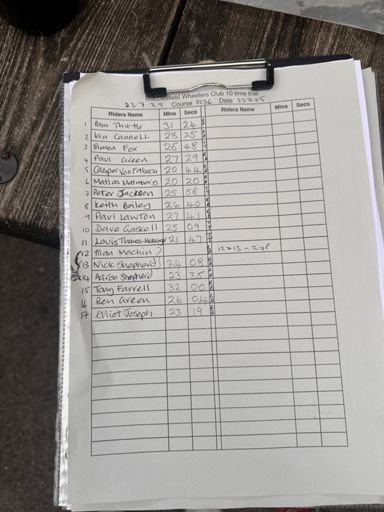 Macclesfield Wheelers Club 10 time trial
23.7.25 Course JC36 Date 23.7.25
Riders Name Mins Secs Riders Name Mins Secs
1 Pam Thirtle 31 24
2 Ian Cannell 28 25
3 Simon Fox 25 48
4 Paul Green 27 29
5 Casper Von Folbach 20 44
6 Matias Malmberg 20 20
7 Peter Jackson 25 58
8 Keith Bailey 26 40
9 Paul Lawton 27 41
10 Dave Gaskell 25 09
11 Louis 21 47
12 Alan Machin
12 + 13 - 2up
13 Nick Shepherd 24 08
14 Aaron Shepherd 23 25
15 Tony Farrell 32 00
16 Ben Green 26 04
17 Elliot Joseph 23 19